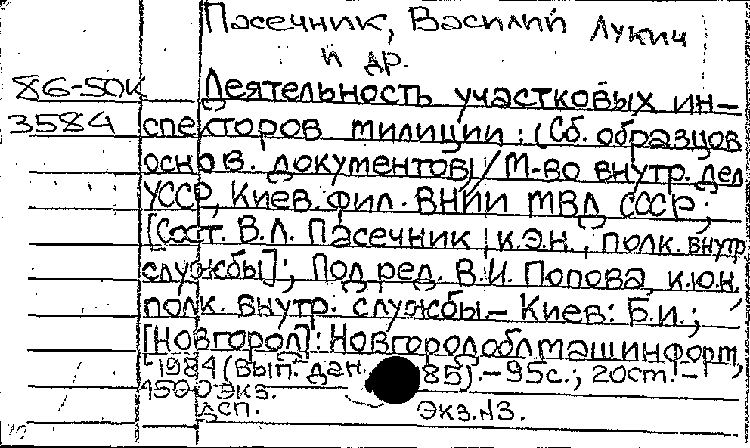 Пасечник, Василий Лукич
и др.
86-50к Деятельность участковых ин-
3584 спекторов милиции: (Сб. образцов
основ. документов) / М-во внутр. дел
УССР, Киев. фил. ВНИИ МВД СССР;
[Сост. В.Л. Пасечник, к.э.н., полк. внутр.
службы]; Под ред. В.И. Попова, к.ю.н.,
полк. внутр. службы.- Киев: Б.и.;
[Новгород]: Новгородоблмашинформ,
1984 (вып. дан. 85).-95с.; 20см.-
4500 экз.
ДСП. Экз.N3.